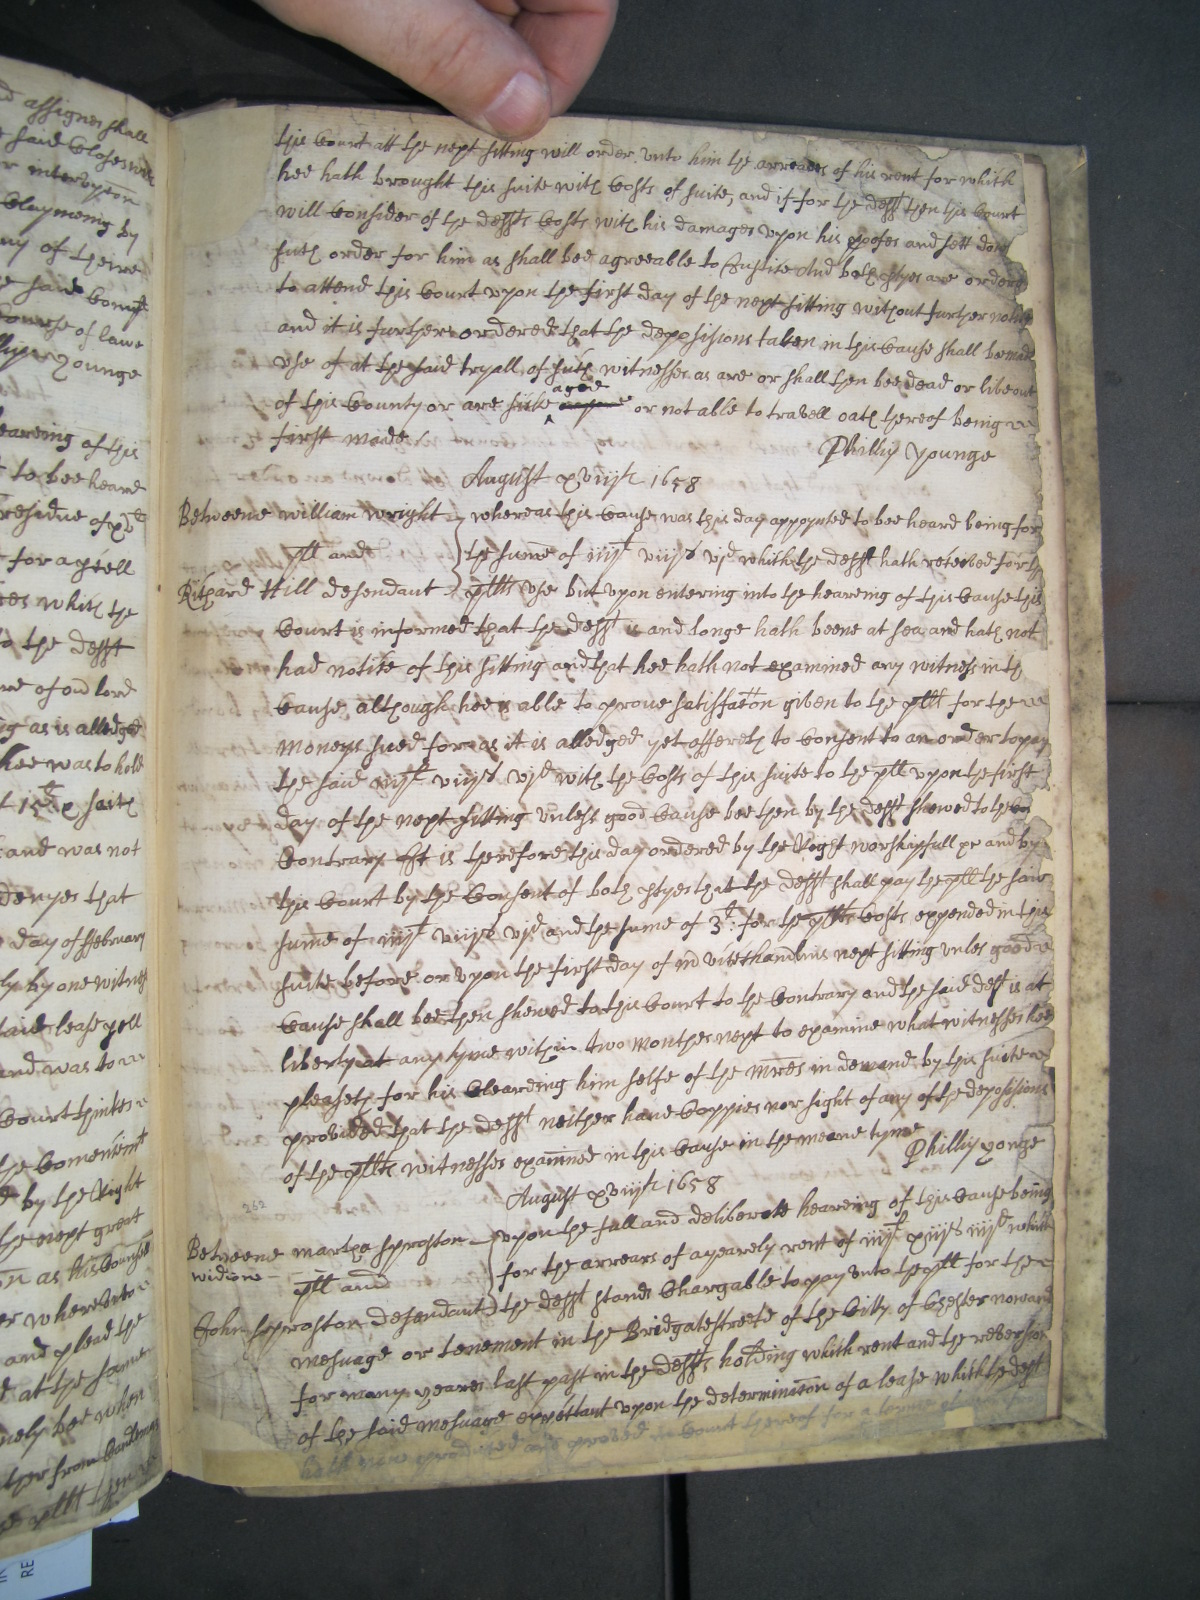 nd assignes shall
e said Closes with
r intervpcon
Claymeing by
ny of theire
e said comiss
course of lawe
llipp Younge
eareing of this
t to bee heard
residue of xs
for a 
es which the
to the defft
 of our lord
g as is alledged
hee was to hold
 saith
and was not
denyes that
day of ffebruary
ly by one witnes
said lease 
and was to
Court thinkes
the 
d by the Right
the next great
 as his Councell
er whereunto
and plead the
d at the same
 bee when
ther from 
 pltt then
this Court att the next sitting will order vnto him the arreares of his rent for which
hee hath brought this suite with Costs of suite, and if for the defft then this Court
will Consider of the deffts Costs with his damages vpon his and sett downe
such order for him as shall bee agreeable to Justice And both ptyes are ordered
to attend this Court vpon the first day of the next sitting without further notice
and it is further ordered that the depositions taken in this Cause shall be made
vse of at the said tryall, of such witnesses as are or shall then bee dead or live out
aged
of this County or are sicke or not able to travell oath thereof being
first made
Phillip Younge
August xviijth 1658
Betweene William Wright whereas this Cause was this day appoynted to bee heard being for
pltt and the sume of iiijl viijs vjd which the defft hath received for the
Richard Hill defendant pltts vse but vpon entering into the heareing of this Cause this
Court is informed that the defft is and longe hath beene at sea and hath not
had notice of this sitting and that hee hath not examined any witness in th
Cause, although hee is able to prove satisfaccon given to the pltt for the
moneys sued for as it is alledged yet offereth to Consent to an order to pay
the said iiijl viijs vjd with the Costs of this suite to the pltt vpon the first
day of the next sitting vnless good Cause bee then by the defft shewed to the
Contrary It is therefore this day ordered by the Right worshipfull and by
this Court by the Consent of both ptyes that the defft shall pay the pltt the said
sume of iiijl viijs vjd and the sume of 3l: for the pltts Costs expended in this
suite before or vpon the first day of next sitting vnles good
Cause shall bee then shewed to this Court to the Contrary and the said deft is at
liberty at any tyme within two monthes next to examine what witnesses hee
pleaseth for his Cleareing him selfe of the mres in demand by this suite
provided that the defft neither have Coppies nor sight of any of the depositions
of the pltts witnesses examined in this Cause in the meane tyme
Phillip yonge
August xviijth 1658
262
Betweene martha Sproston vpon the full and deliberate heareing of this Cause being
widdowe for the arrears of a yearely rent of iiijl xiijs iiijd which
pltt and
John Sproston defendant the defft stands Chargable to pay vnto the pltt for the
mesuage or tenement in the Bridgatestreete of the Citty of Chester now and
for many yeares last past in the deffts holding which rent and the reversion
of the said mesuage expectant vpon the determinacon of a lease which the deft
hath now produced and proved in Court thereof for a terme
RE